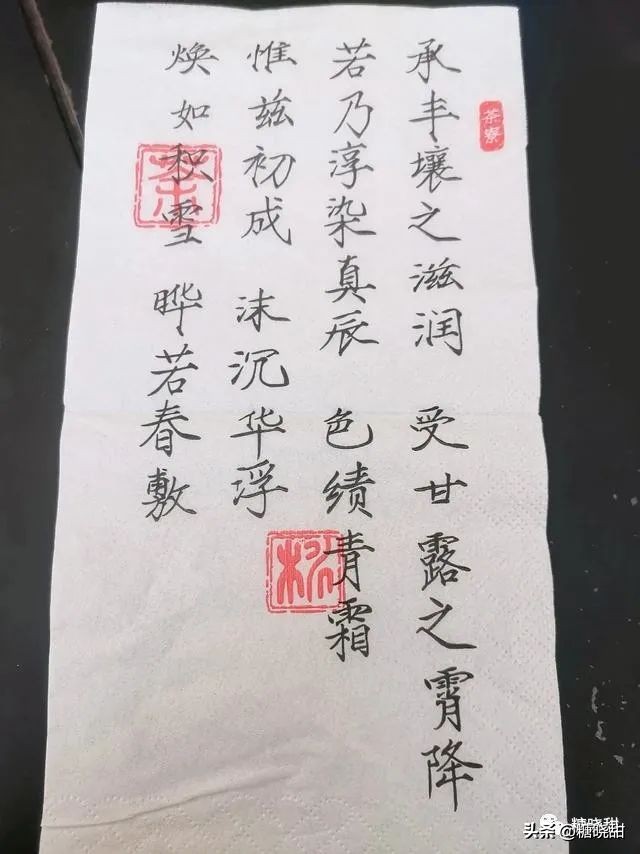 茶寮
承丰壤之滋润 受甘露之霄降
若乃淳染真辰 色绩青霜
惟兹初成 沫沉华浮
焕如积雪 晔若春敷
茶
糖晓甜
头条@糖晓甜